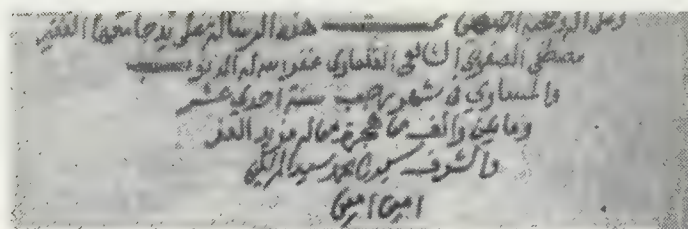 وعلى اله وصحبه اجمعين تمت هذه الرسالة على يد جامعها الفقير
مصطفى الصفوي الشافعي القلعاوي غفر الله له الذنوب
والمساوي في شهر رجب سنة احدي عشر
وماتين والف من هجرة من له مزيد العز
والشرف سيدنا محمد سيد
امين امين